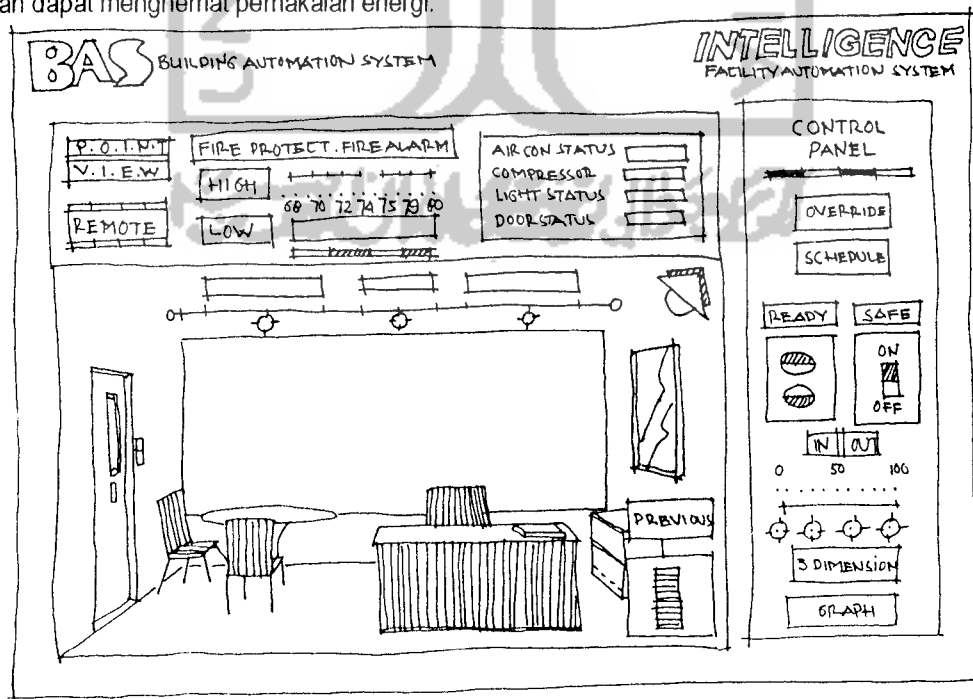 an dapat menghemat pemakaian energi.
BAS BUILDING AUTOMATION SYSTEM
INTELLIGENCE
FACILITY AUTOMATION SYSTEM
P.O.I.N.T
V.I.E.W
REMOTE
FIRE PROTECT. FIRE ALARM
HIGH
68 70 72 74 75 79 80
LOW
AIRCON STATUS
COMPRESSOR
LIGHT STATUS
DOOR STATUS
CONTROL
PANEL
OVERRIDE
SCHEDULE
READY SAFE
ON
OFF
IN OUT
0 50 100
3 DIMENSION
GRAPH
PREVIOUS